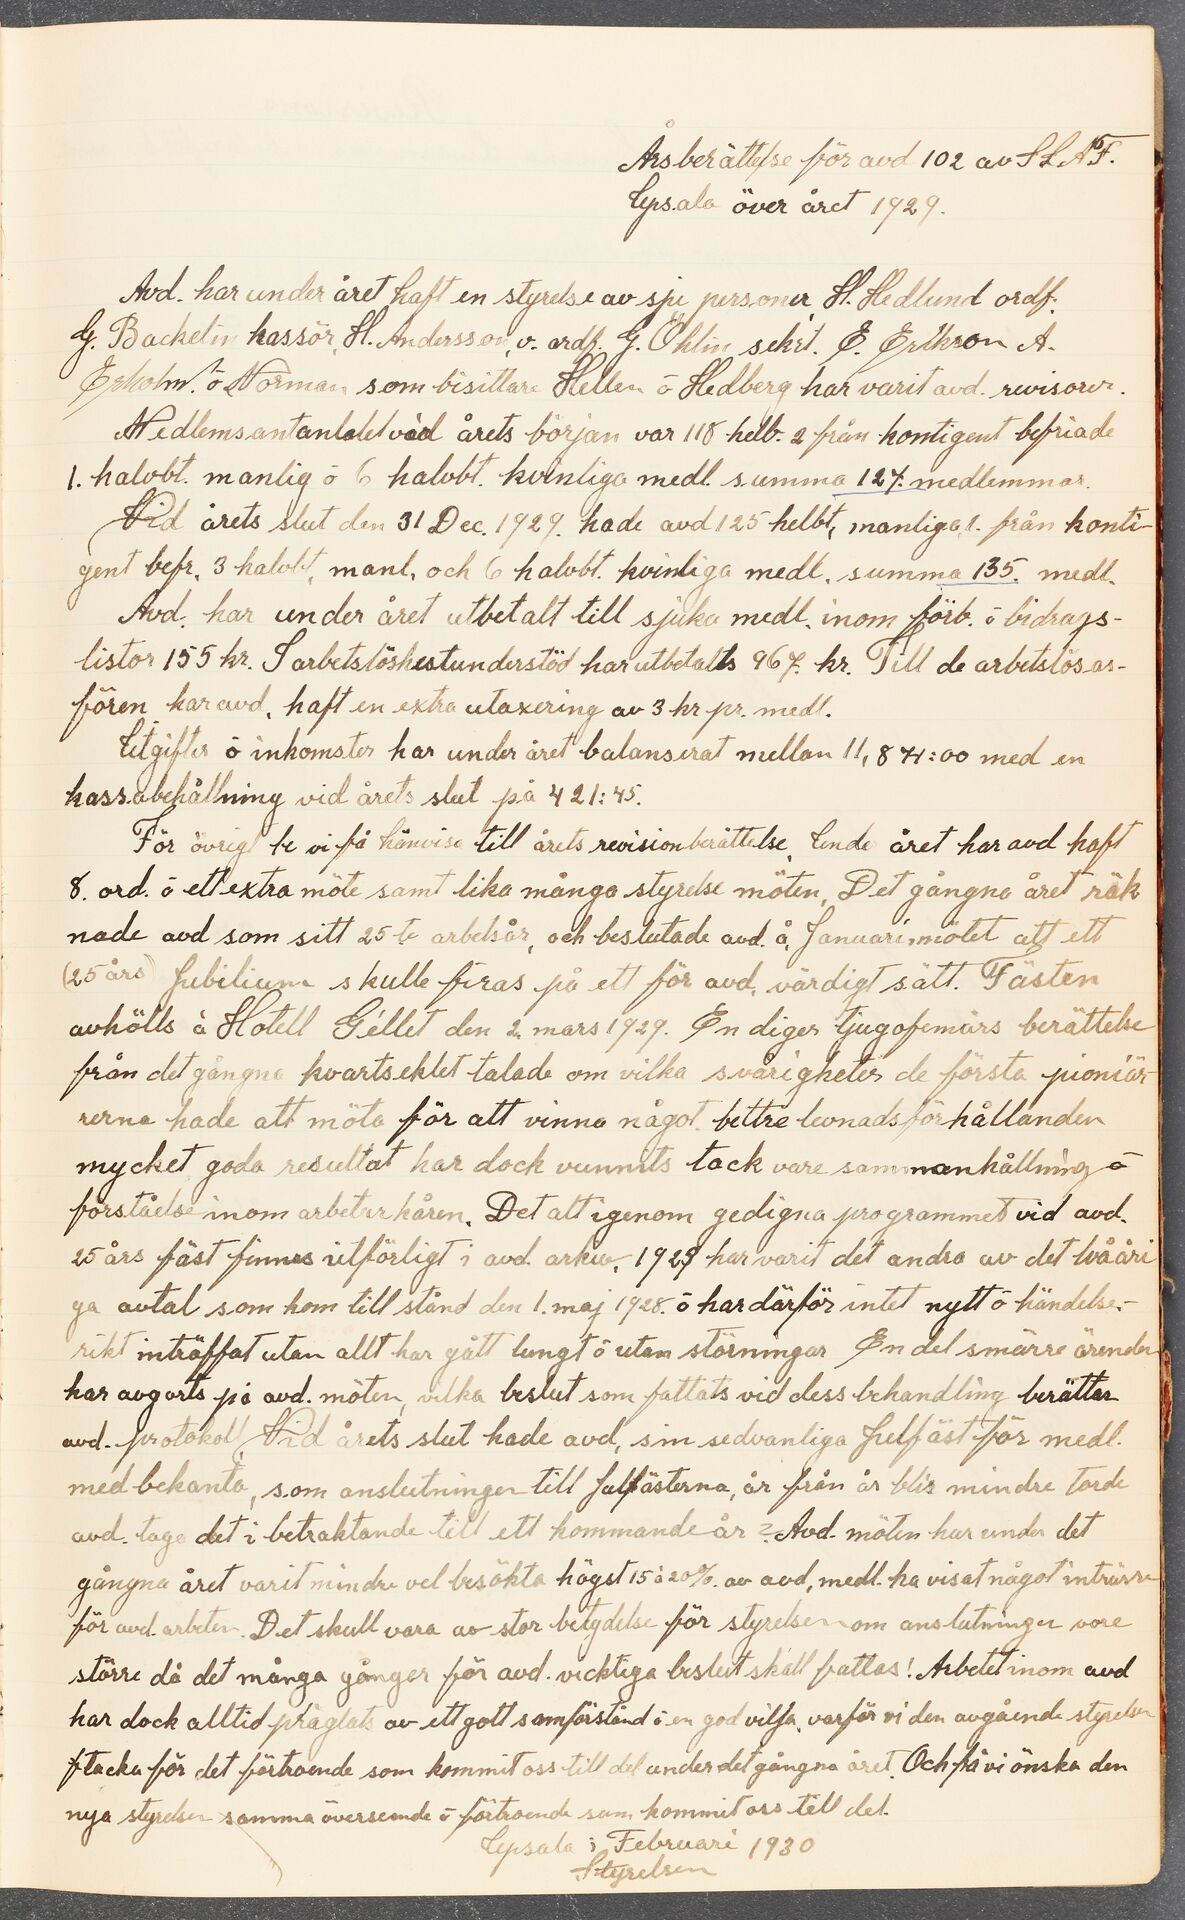 Årsberättelse för avd 102 av S L A F.
Upsala över året 1929.
Avd. har under året haft en styrelse av sju personer, H. Hedlund ordf.
G. Backelin kassör, H. Andersson, v. ordf. G. Öhlin sekrt. E. Erikson A.
Ekholm. o Norman som bisittare Hellen o Hedberg har varit avd. revisorer.
Medlemsantantalet vid årets början var 118 helb. 2 från kontigent befriade
1. halvbt. manlig o 6 halvbt. kvinliga medl. summa 127. medlemmar.
Vid årets slut den 31 Dec. 1929. hade avd 125 helbt, manliga, 1. från konti-
gent befr. 3 halvbt, manl, och 6 halvbt. kvinliga medl. summa 135. medl.
Avd. har under året utbetalt till sjuka medl. inom förb. o bidrags-
listor 155 kr. I arbetslöshestunderstöd har utbetalts 967. kr. Till de arbetslösas-
fören har avd, haft en extra utaxering av 3 kr pr. medl.
Utgifter o inkomster har under året balanserat mellan 11,871:00 med en
kassabehållning vid årets slut på 421:45.
För övrigt be vi få hänvisa till årets revisionberättelse, Unde året har avd haft
8. ord. o ett extra möte samt lika många styrelse möten, Det gångna året räk
nade avd som sitt 25 te arbetsår, och beslutade avd. å, Januari, mötet att ett
(25 års) Jubilium skulle firas på ett för avd, värdigt sätt. Fästen
avhölls å Hotell Gillet den 2. mars 1929. En diger tjugofemårs berättelse
från det gångna kvartseklet talade om vilka svårigheter de första pioniär-
rerna hade att möta för att vinna något bettre levnadsförhållanden
mycket goda resultat har dock vunnits tack vare sammanhållning o
förståelse inom arbetarkåren. Det altigenom gedigna programmet vid avd.
25 års fäst finnes utförligt i avd. arkiv, 1929 har varit det andra av det tvååri
ga avtal som kom till stånd den 1. maj 1928. o har därför intet nytt o händelse-
rikt inträffat utan allt har gått lungt o utan störningar En del smärre ärenden
har avgorts på avd. möten, vilka beslut som fattats vid dess behandling berättar
avd. protokoll, Vid årets slut hade avd, sin sedvanliga Julfäst för medl.
med bekanta, som anslutningen till Julfästerna, år från år blir mindre torde
avd. taga det i betraktande till ett kommande år? Avd. möten har under det
gångna året varit mindre vel besökta högst 15 à 20%. av avd, medl. ha visat något intrürse
för avd. arbeten. Det skull vara av stor betydelse för styrelsen om anslutningen vore
större då det många gånger för avd. vicktiga beslut skall fattas! Arbetet inom avd
har dock alltid präglats av ett gott samförstånd o en god vilja, varför vi den avgående styrelsen
tacka för det förtroende som kommit oss till del under det gångna året. Och få vi önska den
nya styrelsen samma överseende o förtroende som kommit oss till del.
Upsala i Februari 1930
Styrelsen